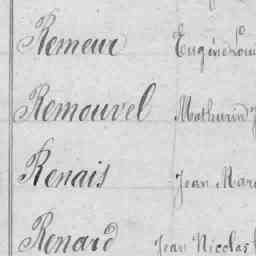 Remeur Eugène Loui
Remouvel Mathurin J
Renais Jean Mar
Renard Jean Nicolas